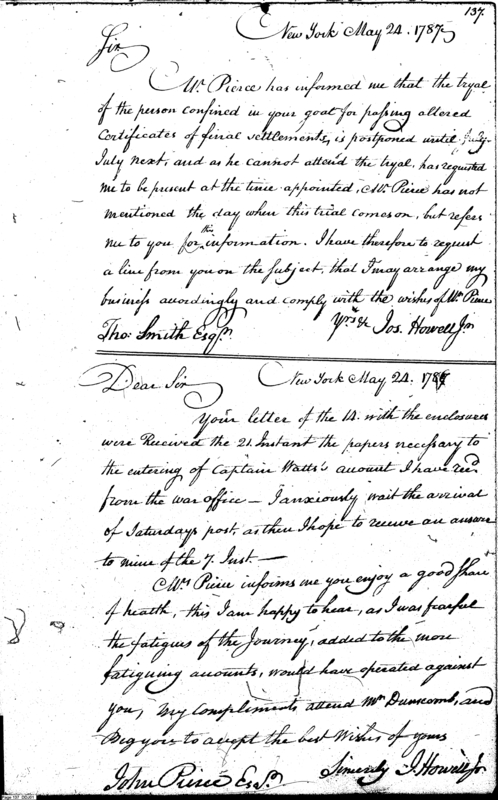 137.
New York May 24. 1787
Sir
Mr. Pierce has informed me that the tryal
of the person confined in your goal for passing altered
Certificates of final settlements, is postponed until
July next, and as he cannot attend the tryal, has requested
me to be present at the time appointed, Mr. Pierce has not
mentioned the day when this trial comes on, but refers
me to you for the information. I have therefore to request
a line from you on the subject, that I may arrange my
business accordingly and comply with the wishes of Mr Pierce
Yrs &c Jos. Howell Jr.
Tho: Smith Esqr.
New York May 24. 1787
Dear Sir
Your letter of the 14. with the enclosures
were Received the 21. Instant the papers necessary to
the entering of Captain Watts's account I have recd
from the war office — I anxiously wait the arrival
of Saturdays post, as then I hope to receive an answer
to mine of the 7. Inst. —
Mr. Pierce informs me you enjoy a good share
of health, this I am happy to hear, as I was fearful
the fatigues of the Journey, added to the more
fatiguing accounts, would have operated against
you, my Compliments attend Mr. Dunscomb, and
Beg you to accept the best Wishes of yours
Sincerely J. Howell Jr.
John Pierce Esqr.